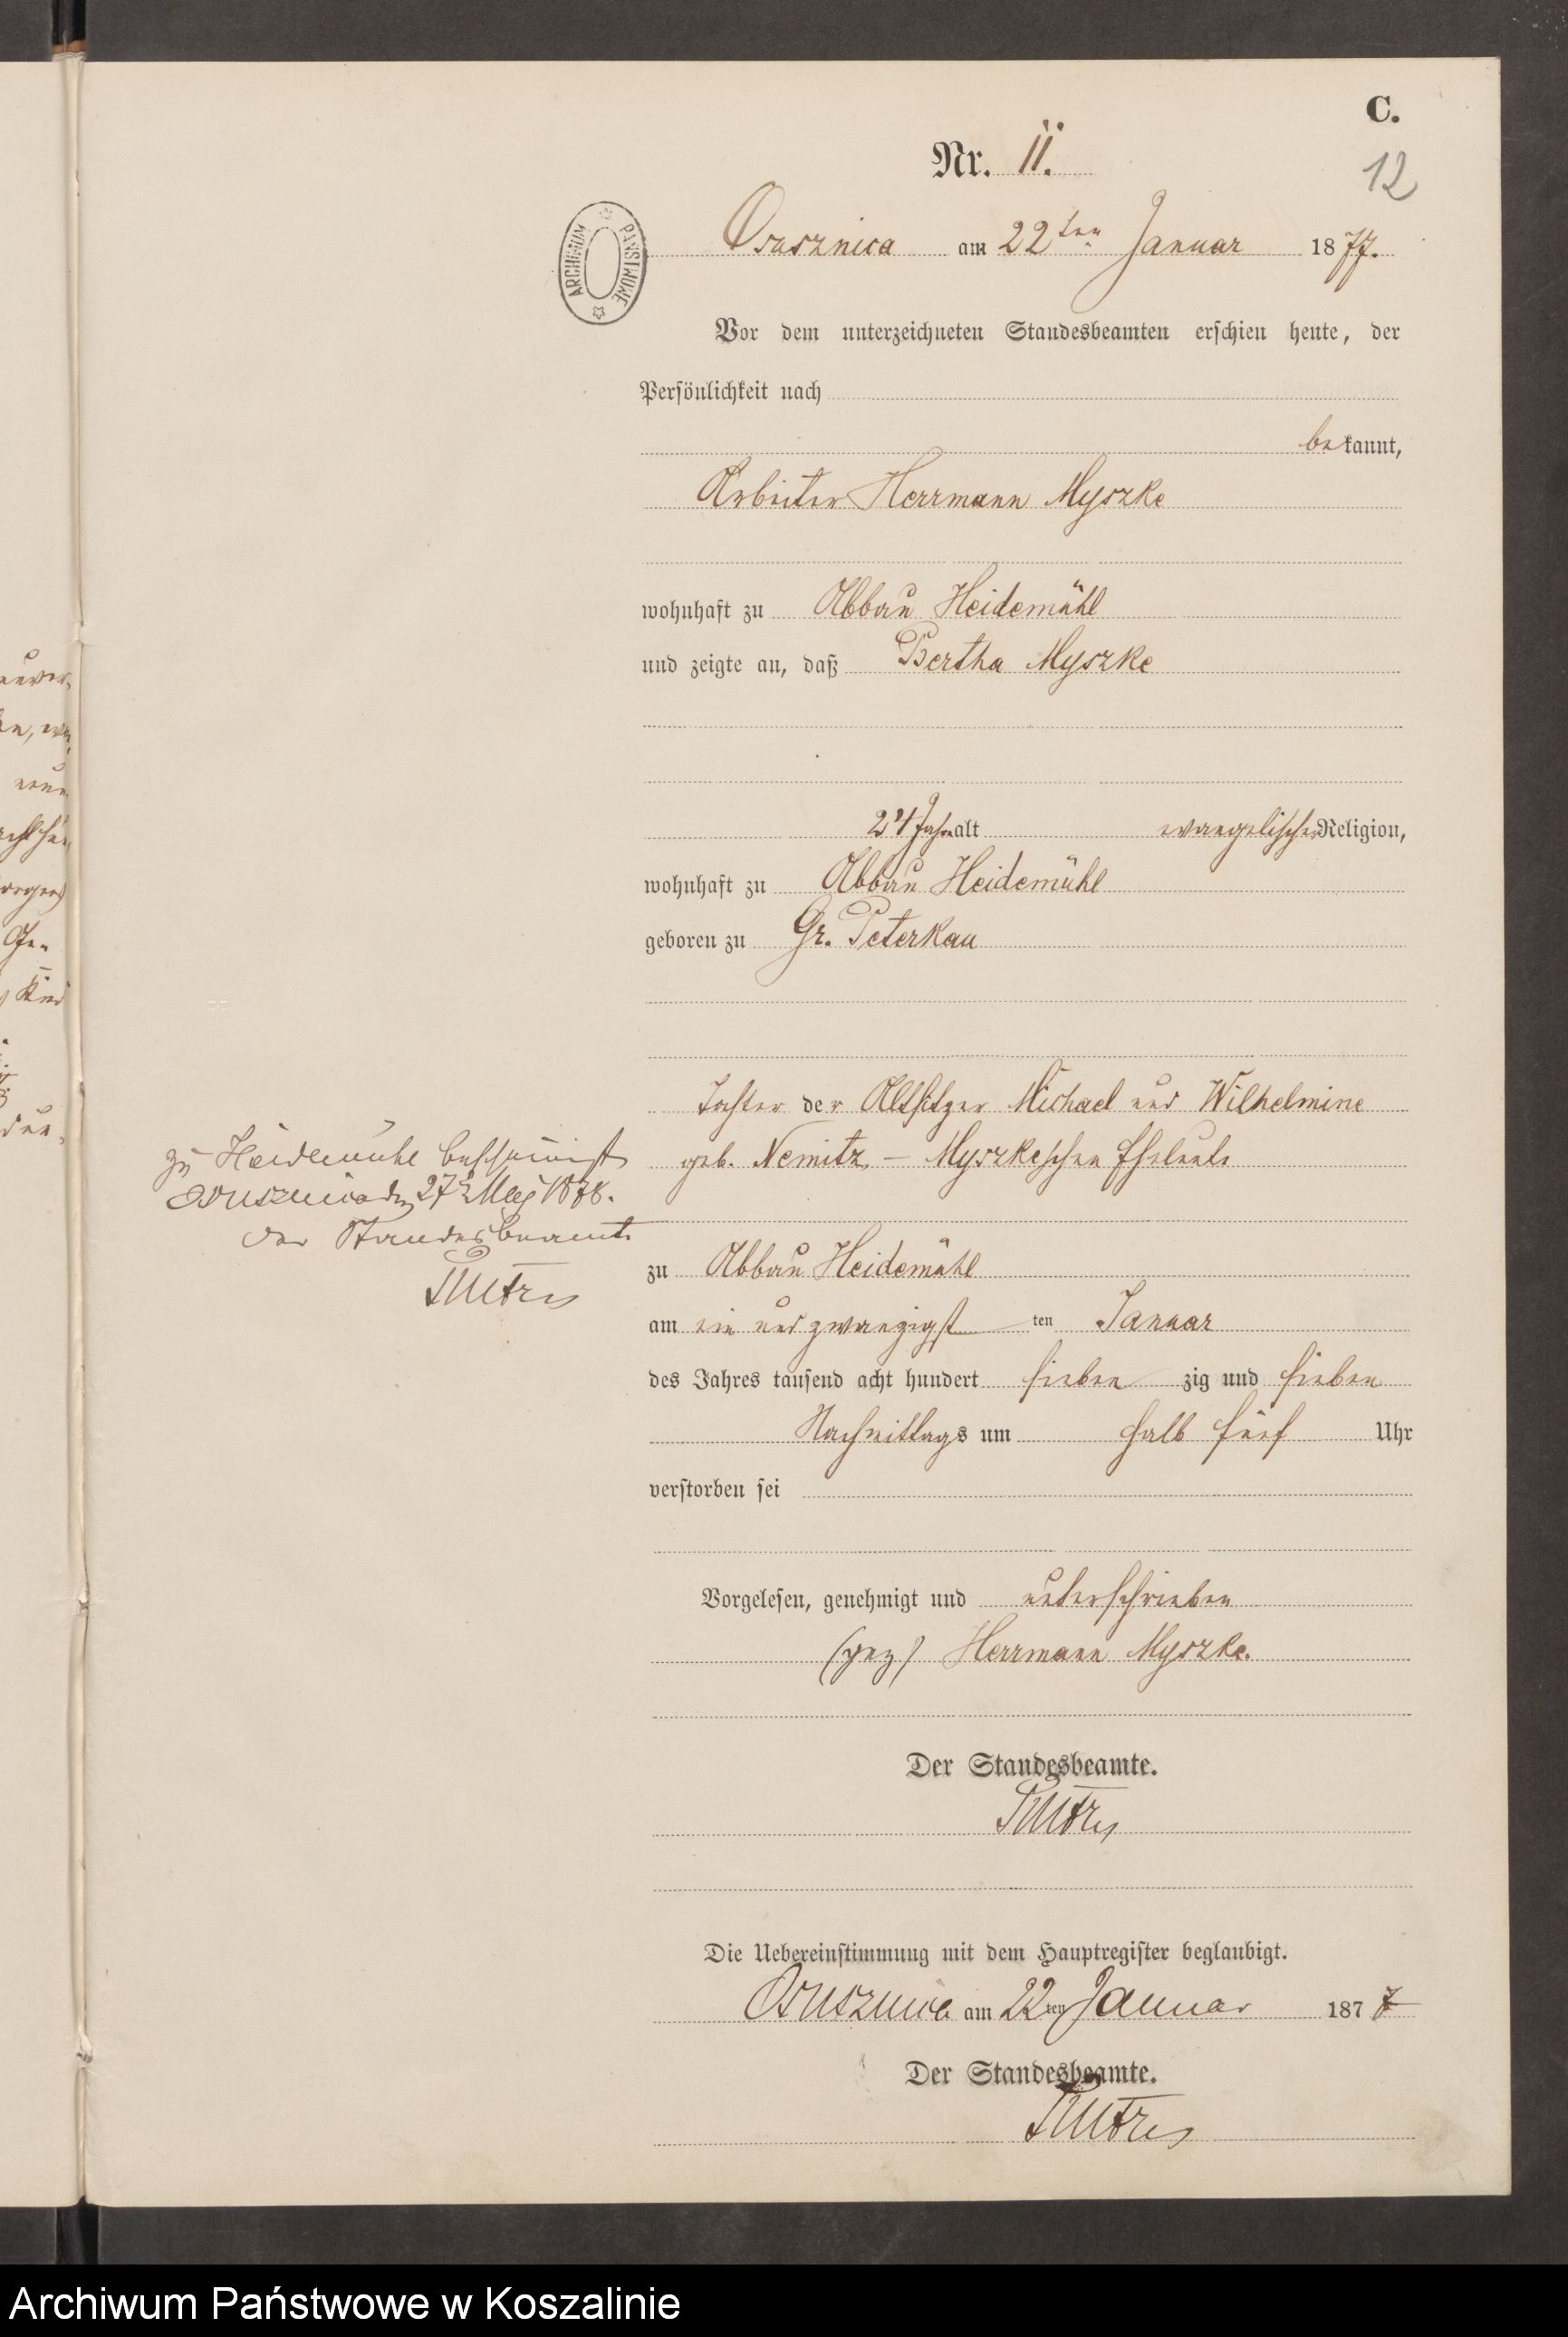 C.
Nr. 11.
12
ARCHIWUM PAŃSTWOWE
Ossusznica am 22ten Januar 1877.
Vor dem unterzeichneten Standesbeamten erschien heute, der
Persönlichkeit nach
bekannt,
Arbeiter Herrmann Myszke
wohnhaft zu Abbau Heidemühl
und zeigte an, daß Bertha Myszke
24 Jahre alt evangelischer Religion,
wohnhaft zu Abbau Heidemühl
geboren zu Gr. Peterkau
Tochter der Altsitzer Michael und Wilhelmine
geb. Nemitz - Myszkeschen Eheleute
zu Abbau Heidemühl
am ein und zwanzigsten Januar
des Jahres tausend acht hundert siebenzig und sieben
Nachmittags um halb fünf Uhr
verstorben sei
Vorgelesen, genehmigt und unterschrieben
(gez) Herrmann Myszke.
Der Standesbeamte.
Die Uebereinstimmung mit dem Hauptregister beglaubigt.
am 22ten Januar 1877
Der Standesbeamte.
zu Heidemühl bescheinigt
den 27t Mai 1878.
der Standesbeamte
Archiwum Państwowe w Koszalinie